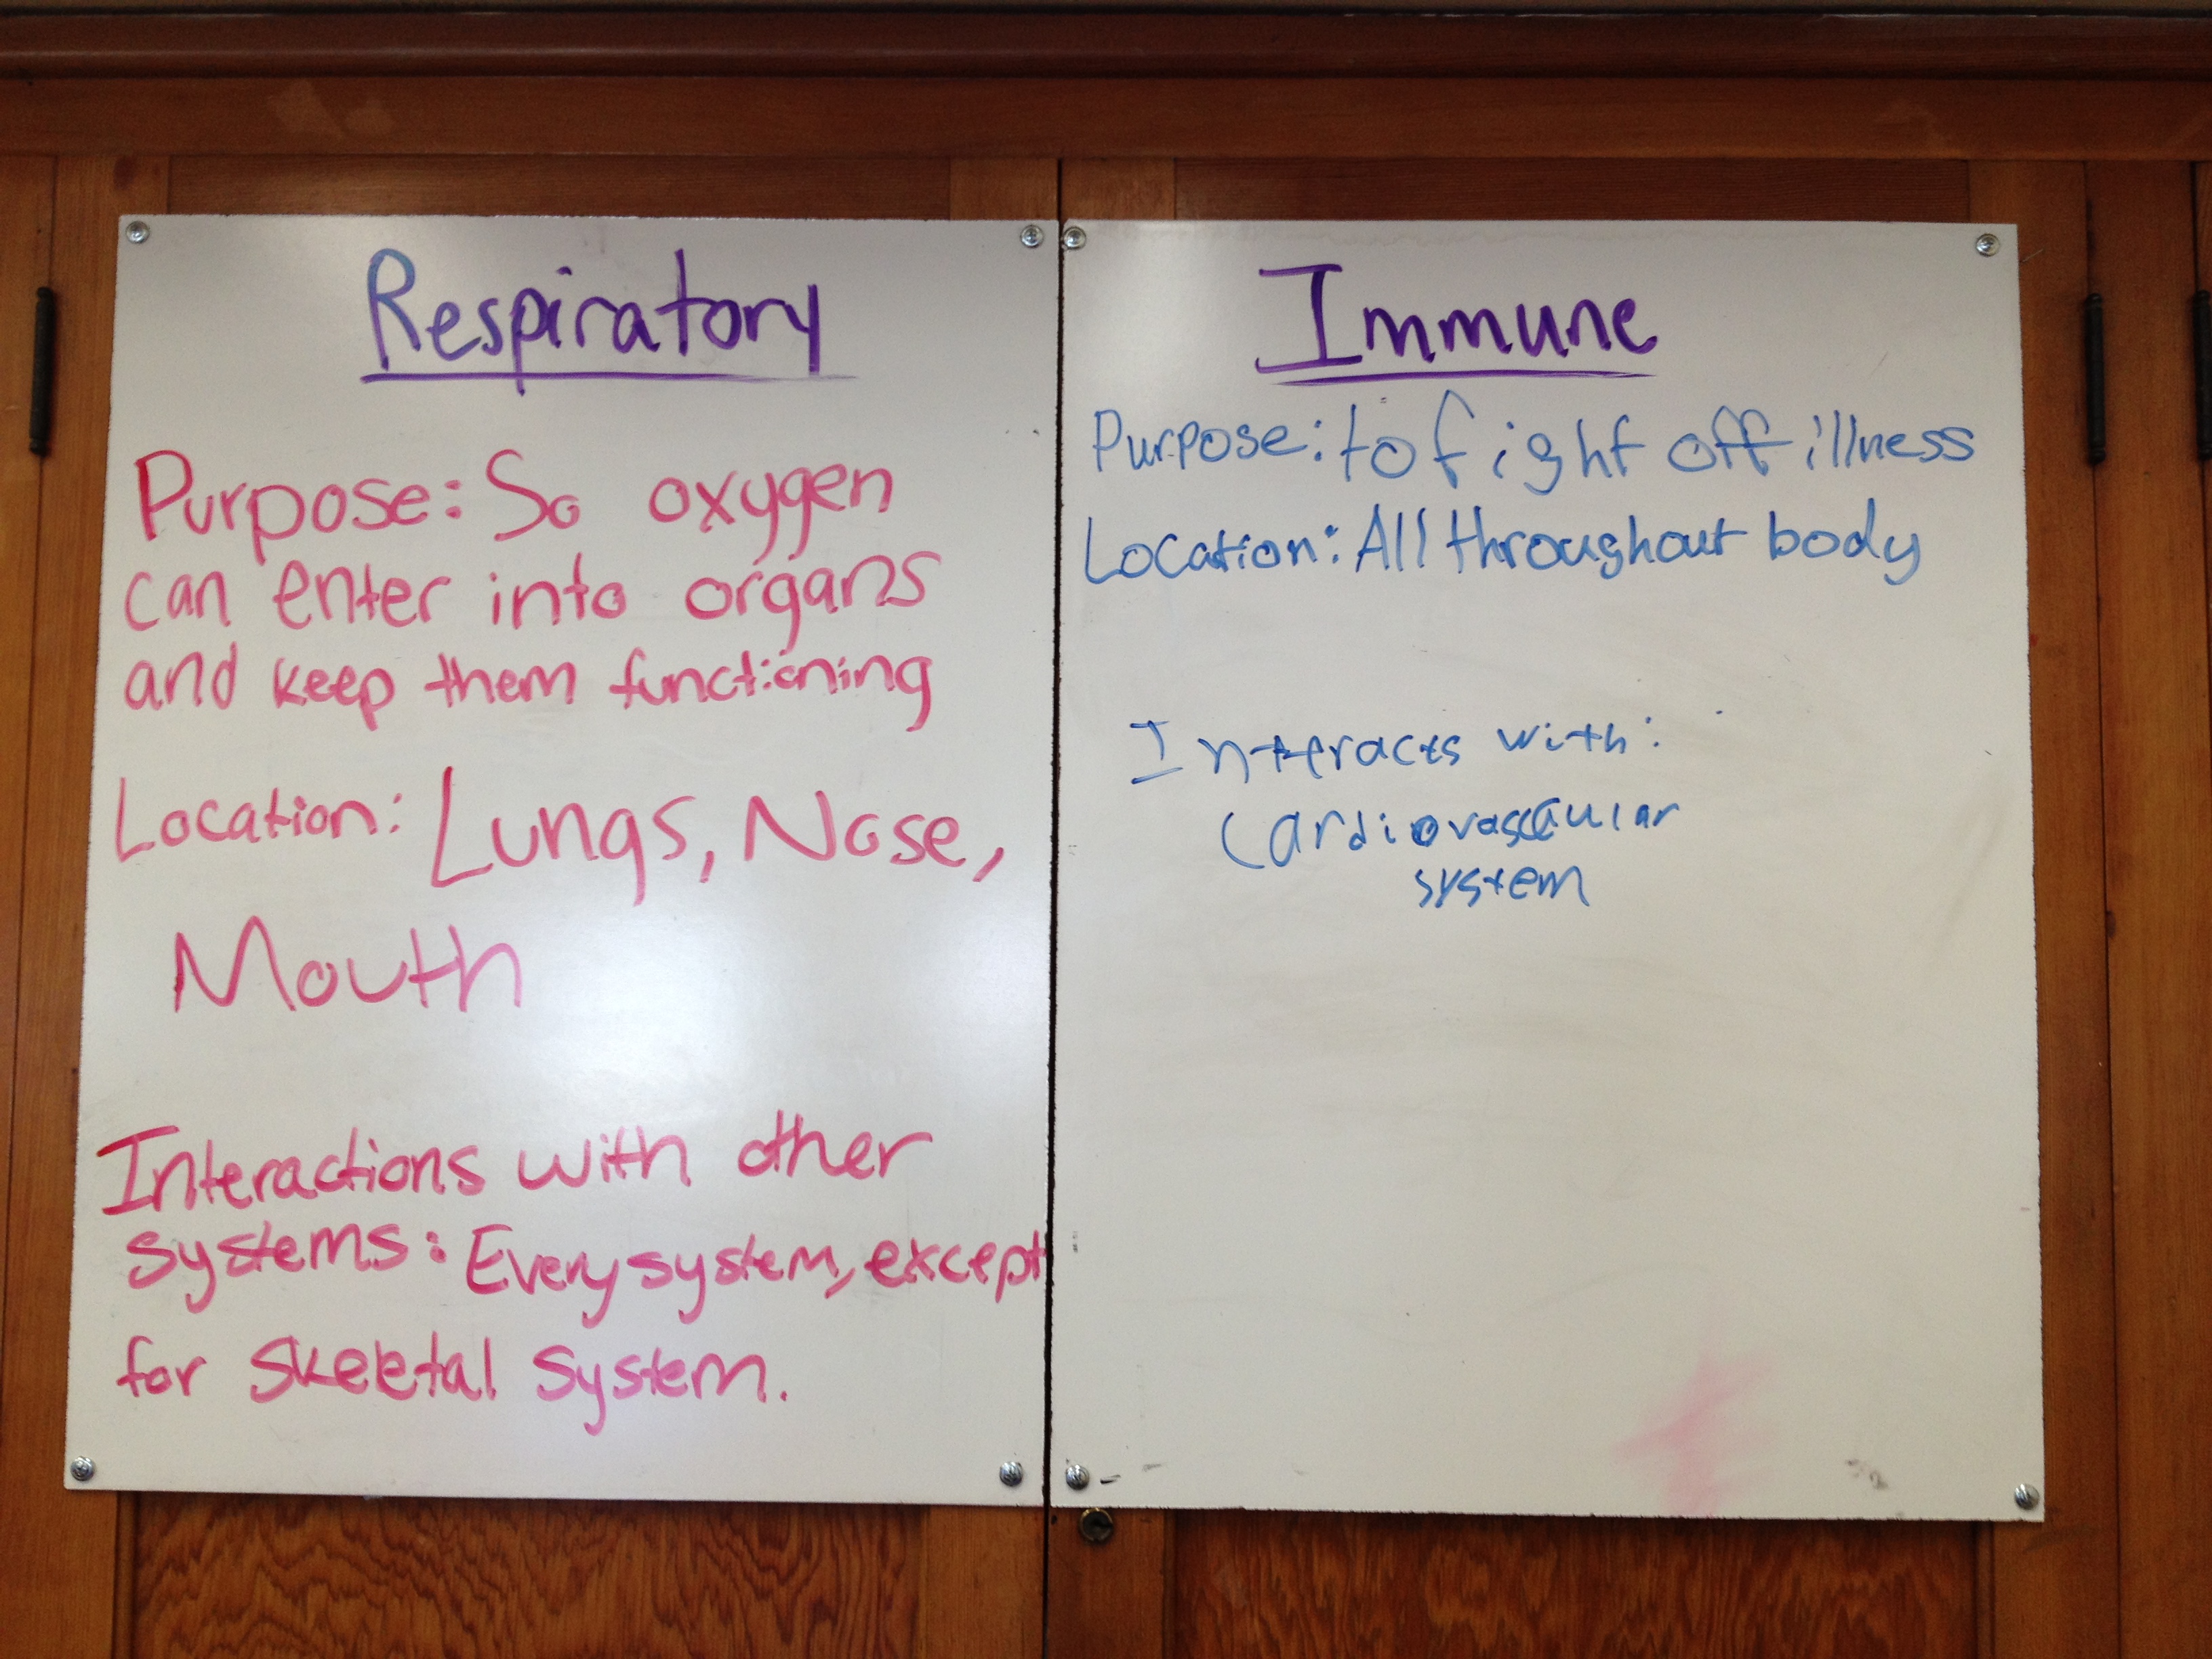 Respiratory
Purpose: So oxygen
can enter into organs
and keep them functioning
Location: Lungs, Nose,
Mouth
Interactions with other
systems: Every system, except
for skeletal system.
Immune
Purpose: to fight off illness
Location: All throughout body
Interacts with:
Cardiovascular
system